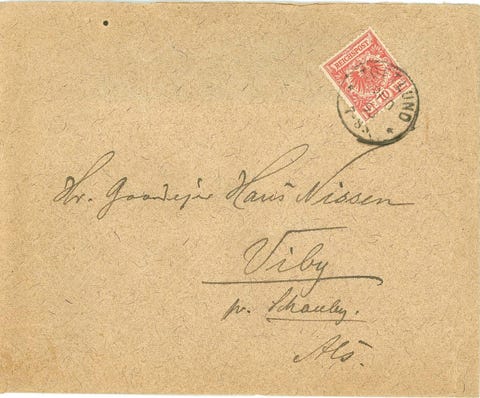 REICHSPOST
10
UND
7-8
Hr. Gaardejer Hans Nissen
Viby
pr. Schauby.
Als.